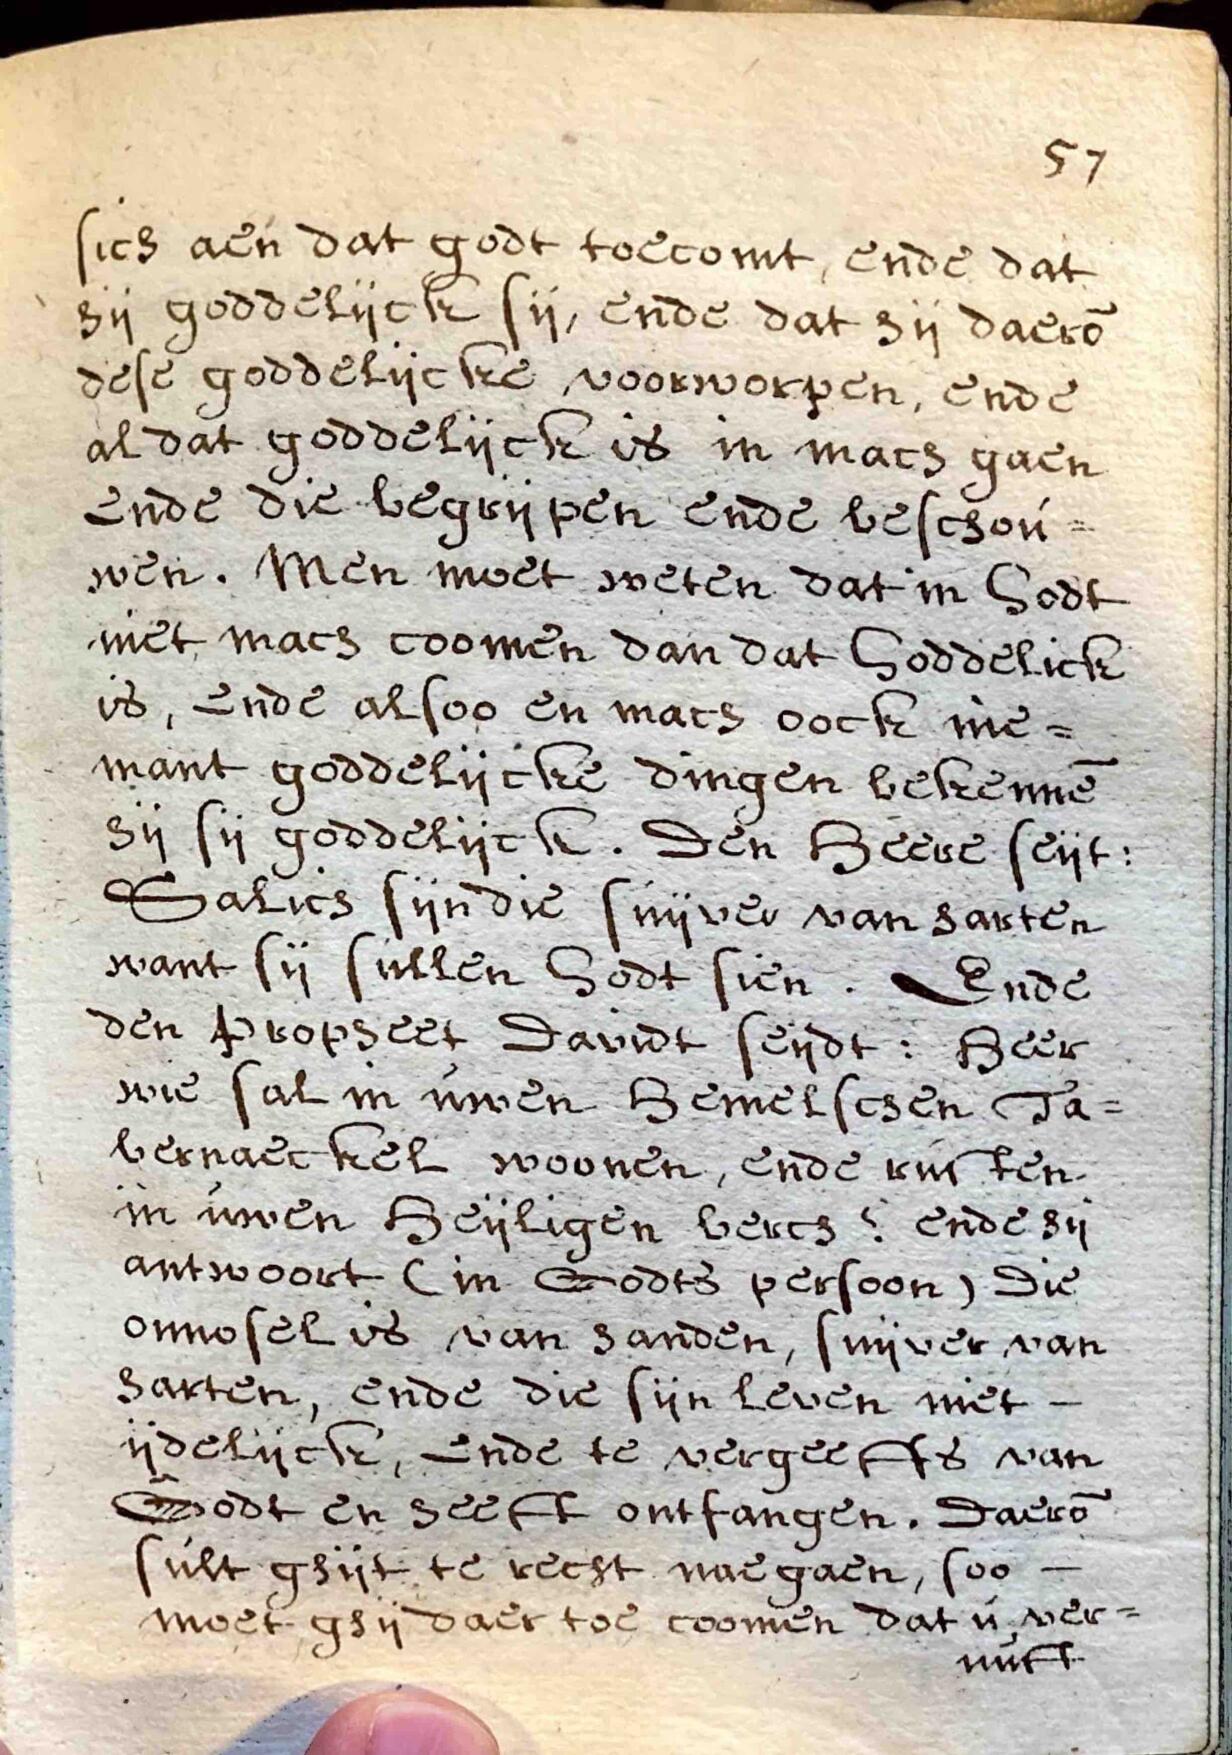 57
sich aen dat godt toecomt, ende dat
hij goddelijck sij, ende dat hij daerō
dese goddelijcke voorworpen, ende
al dat goddelijck is in mach gaen
ende die begrijpen ende beschou=
wen. Men moet weten dat in Godt
niet mach coomen dan dat Goddelick
is, ende alsoo en mach oock nie=
mant goddelijcke dingen bekennē
hij sij goddelijck. Den Heere seijt:
Salich sijn die suijver van harten
want sij sullen Godt sien. Ende
den Propheet Davidt seijdt: Heer
wie sal in uwen Hemelschen Ta=
bernaeckel woonen, ende rusten
in uwen Heijligen berch? ende hij
antwoort (in Godts persoon) Die
onnosel is van handen, suijver van
harten, ende die sijn leven niet –
ijdelijck, ende te vergeeffs van
Godt en heeft ontfangen. Daerō
sult ghijt te recht naegaen, soo –
moet ghij daer toe coomen dat u ver=
nuft